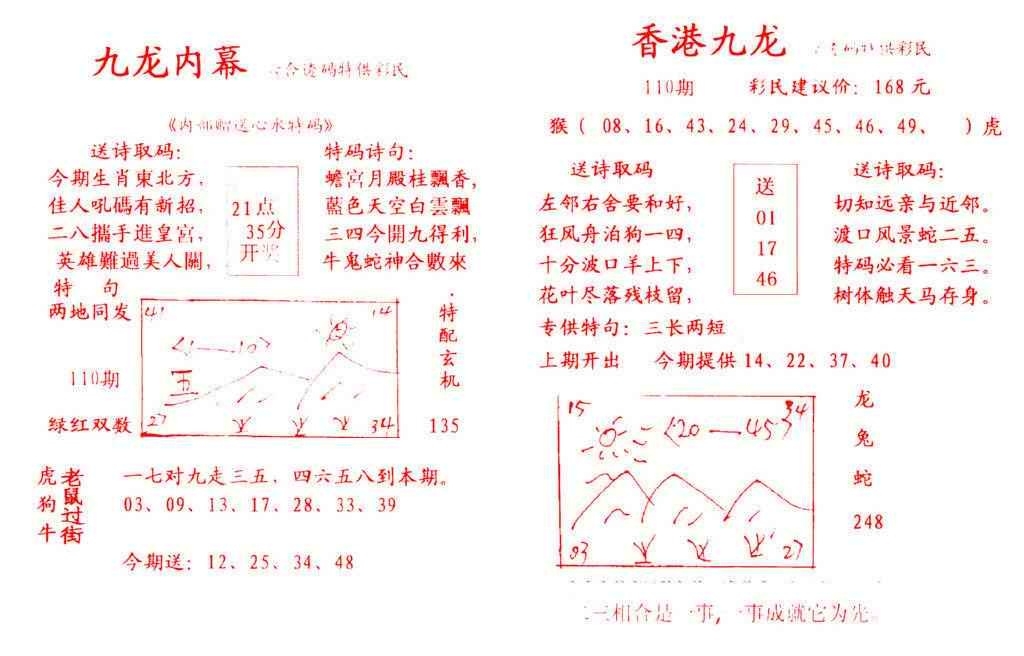 九龙内幕
六合透码特供彩民
《内部赠送心水特码》
送诗取码:
今期生肖東北方,
佳人吼碼有新招,
二八攜手進皇宮,
英雄難過美人關,
21点
35分
开奖
特码诗句:
蟾宮月殿桂飄香,
藍色天空白雲飄
三四今開九得利,
牛鬼蛇神合數來
特 句
两地同发
110期
绿红双数
41 14
<1—10>
五
27 34
特
配
玄
机
135
虎
狗
牛
老鼠过街
一七对九走三五,四六五八到本期。
03、09、13、17、28、33、39
今期送: 12、25、34、48
香港九龙
码特供彩民
110期 彩民建议价: 168元
猴( 08、16、43、24、29、45、46、49、 )虎
送诗取码
左邻右舍要和好,
狂风舟泊狗一四,
十分波口羊上下,
花叶尽落残枝留,
送
01
17
46
送诗取码:
切知远亲与近邻。
渡口风景蛇二五。
特码必看一六三。
树体触天马存身。
专供特句: 三长两短
上期开出 今期提供14、22、37、40
15 34
<20—45>
03 27
龙
兔
蛇
248
二三相合是一事,一事成就它为先。